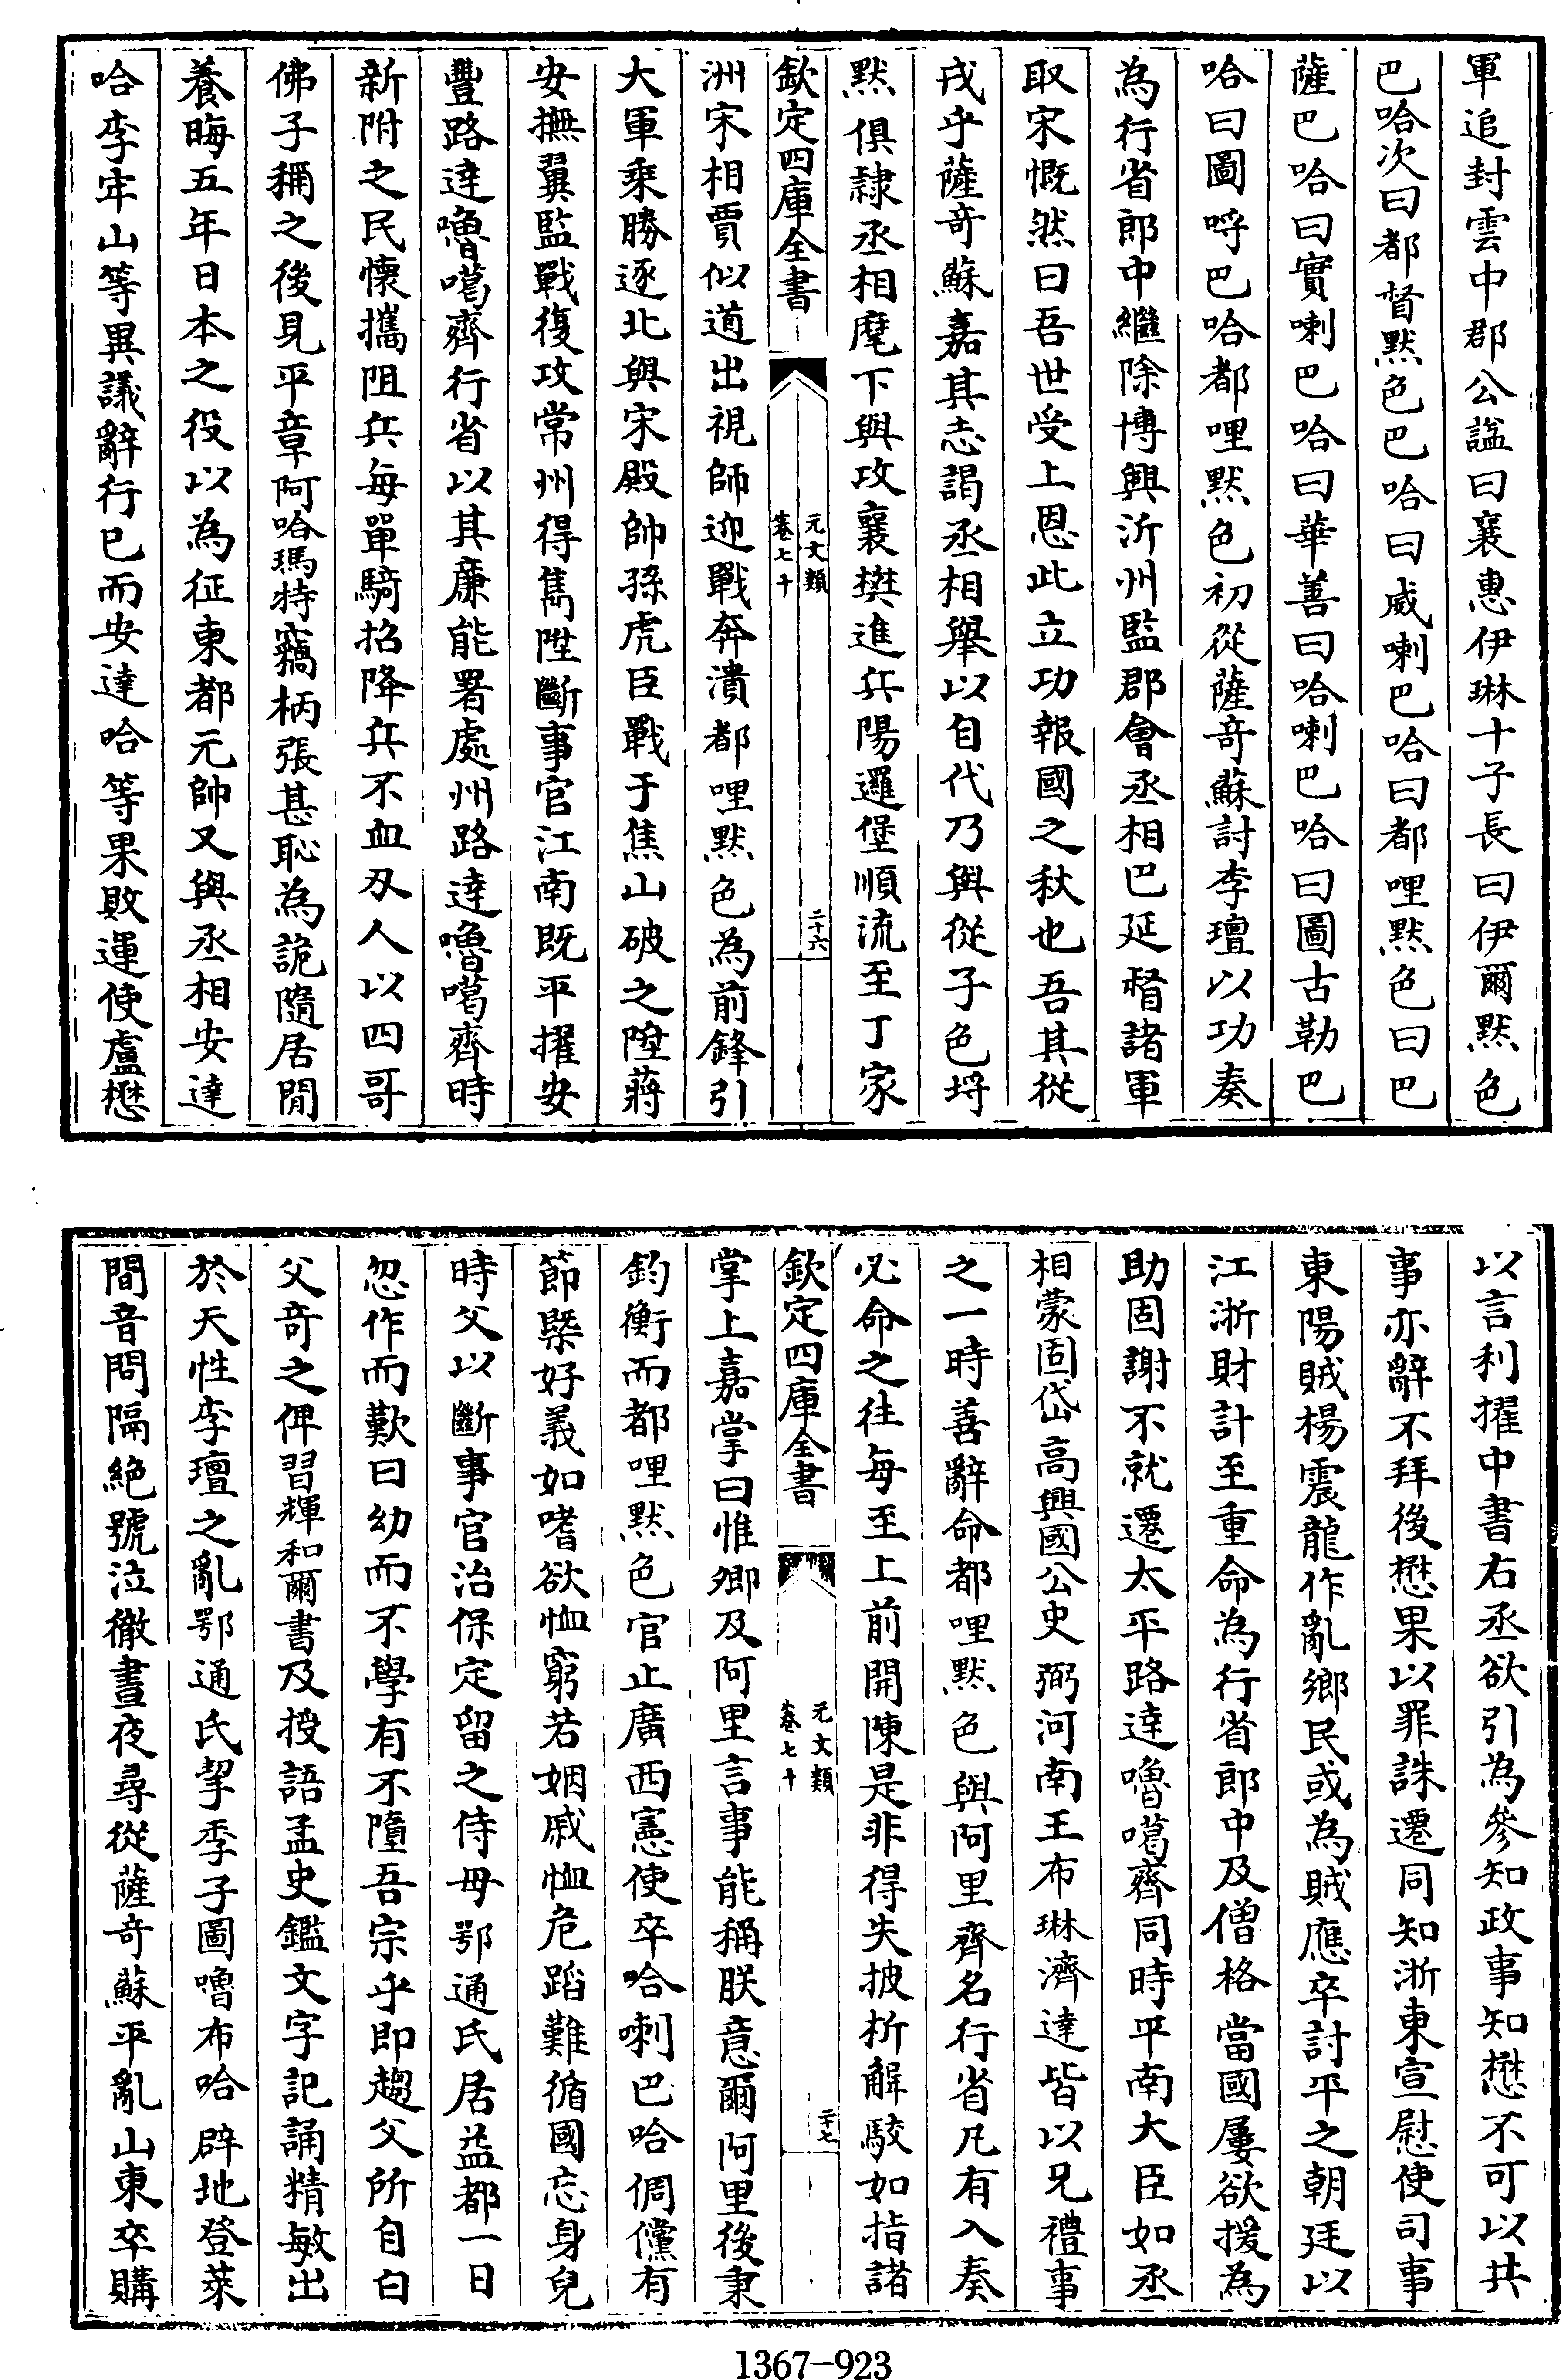 軍追封雲中郡公諡曰襄惠伊琳十子長曰伊爾黙色
巴哈次曰都督黙色巴哈曰威喇巴哈曰都哩黙色曰巴
薩巴哈曰實喇巴哈曰華善曰哈喇巴哈曰圖古勒巴
哈曰圖呼巴哈都哩黙色初從薩竒蘇討李璮以功奏
為行省郎中繼除博興沂州監郡會丞相巴延督諸軍
取宋慨然曰吾世受上恩此立功報國之秋也吾其從
戎乎薩竒蘇嘉其志謁丞相舉以自代乃與從子色埒
黙俱隷丞相麾下與攻襄樊進兵陽邏堡順流至丁家
欽定四庫全書
元文類
卷七十
二十六
洲宋相賈似道出視師迎戰奔潰都哩黙色為前鋒引
大軍乘勝逐北與宋殿帥孫虎臣戰于焦山破之陞蔣
安撫翼監戰復攻常州得雋陞斷事官江南既平擢安
豐路達嚕噶齊行省以其亷能署處州路達嚕噶齊時
新附之民懷攜阻兵每單騎招降兵不血刃人以四哥
佛子稱之後見平章阿哈瑪特竊柄張甚恥為詭隨居閒
養晦五年日本之役以為征東都元帥又與丞相安達
哈李牢山等異議辭行已而安達哈等果敗運使盧懋
以言利擢中書右丞欲引為參知政事知懋不可以共
事亦辭不拜後懋果以罪誅遷同知浙東宣慰使司事
東陽賊楊震龍作亂鄉民或為賊應卒討平之朝廷以
江浙財計至重命為行省郎中及僧格當國屢欲援為
助固謝不就遷太平路達嚕噶齊同時平南大臣如丞
相蒙固岱高興國公史弼河南王布琳濟達皆以兄禮事
之一時善辭命都哩黙色與阿里齊名行省凡有入奏
必命之往每至上前開陳是非得失披析解駮如指諸
欽定四庫全書
元文類
卷七十
二十七
掌上嘉掌曰惟卿及阿里言事能稱朕意爾阿里後秉
鈞衡而都哩黙色官止廣西憲使卒哈喇巴哈倜儻有
節槩好義如嗜欲恤窮若姻戚恤危蹈難循國忘身兒
時父以斷事官治保定留之侍母鄂通氏居益都一日
忽作而歎曰幼而不學有不隳吾宗乎即趨父所自白
父竒之俾習輝和爾書及授語孟史鑑文字記誦精敏出
於天性李璮之亂鄂通氏挈季子圖嚕布哈辟地登萊
間音問隔絶號泣徹晝夜尋從薩竒蘇平亂山東卒購
1367-923